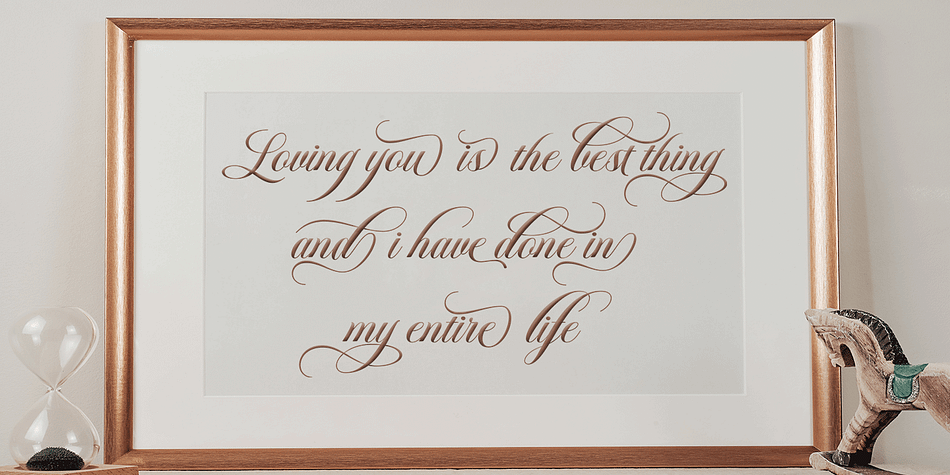 Loving you is the best thing
and i have done in
my entire life